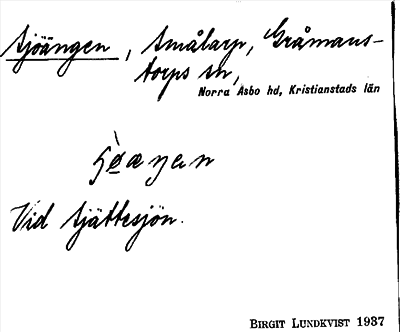 Sjöängen, Smålarp, Gråmans-
torps sn,
Norra Asbo hd, Kristianstads län
Vid Sjättesjön.
BIRGIT LUNDKVIST 1937